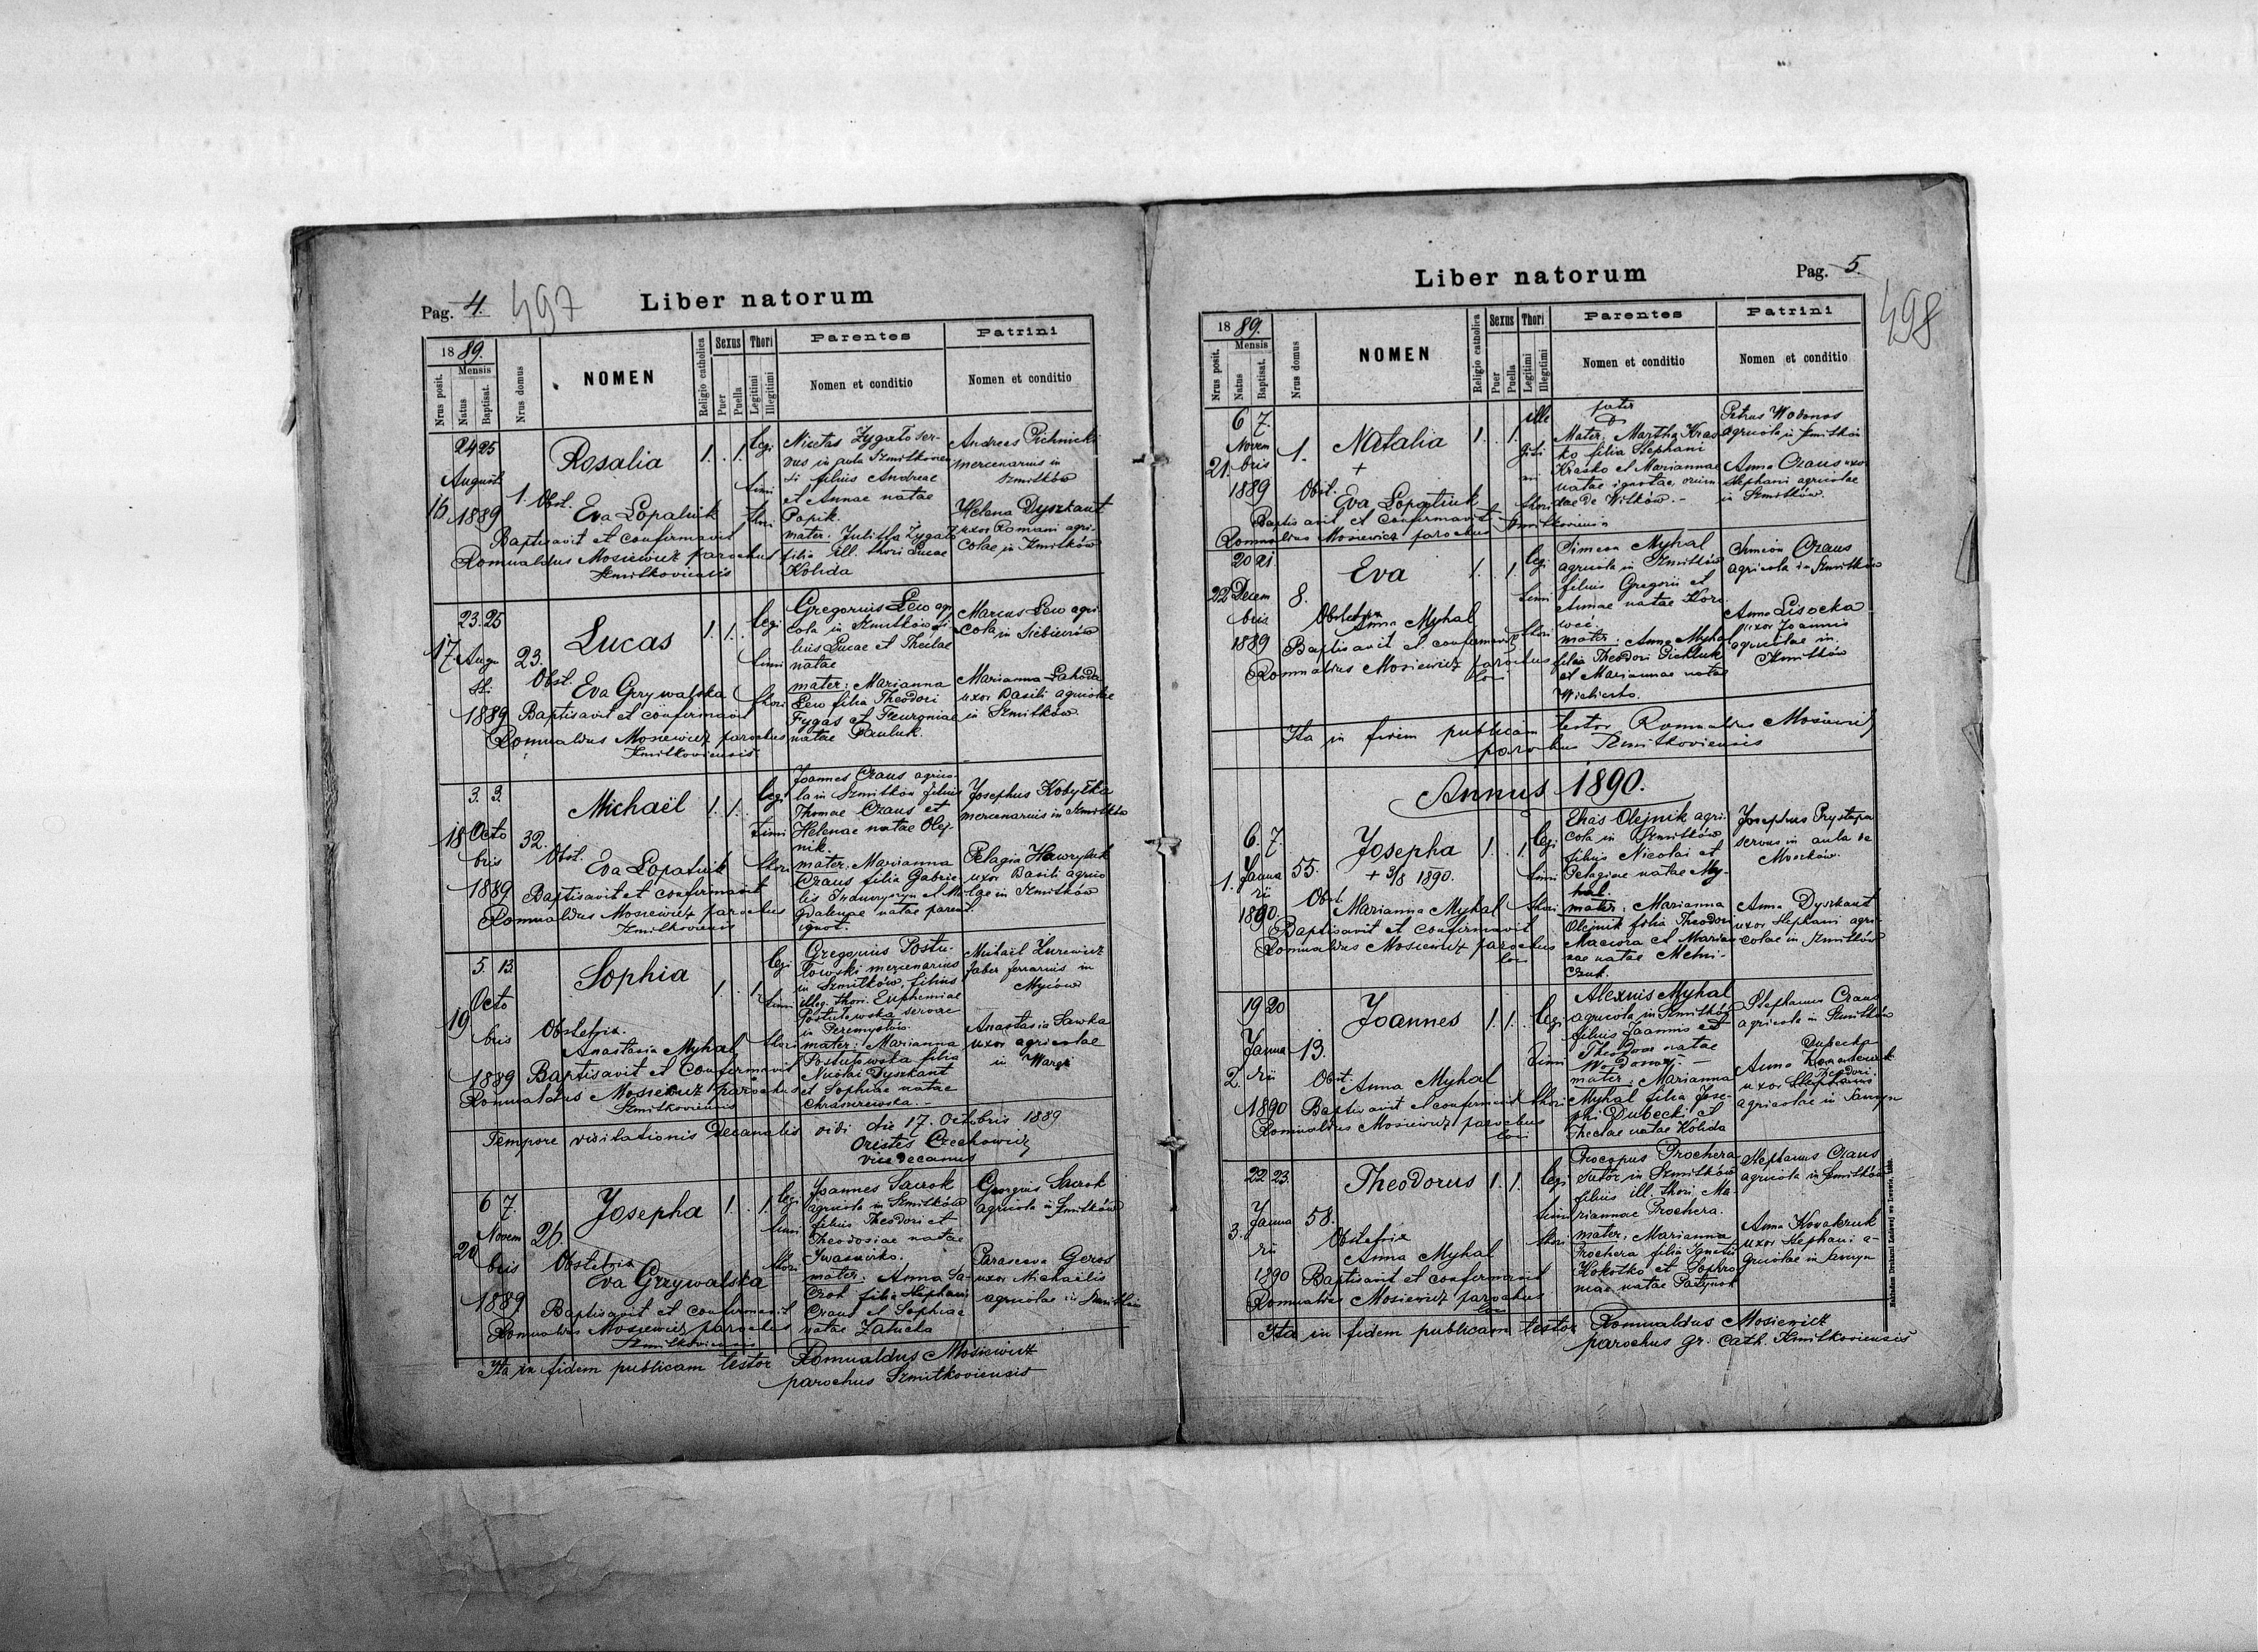 Pag. 4.
497
Liber natorum
1889.
Nrus posit.
Mensis
Natus
Baptisat.
Nrus domus
NOMEN
Religio catholica
Sexus
Puer
Puella
Thori
Legitimi
Illegitimi
Parentes
Nomen et conditio
Patrini
Nomen et conditio
16
24 25
August
1889
1.
Rosalia
Obst. Eva Lopatiuk
Baptisavit et confirmavit
Romualdus Mosiewicz parochus
Szmitkoviensis
1. . 1.
legi
timi
thori
Nicetas Zygało ser-
vus in aula Szmitkovien
si filius Andreae
et Annae natae
Popik.
mater: Julitta Zygało
filia ill. thori Lucae
Kolida
Andreas Pichnicki
mercenarius in
Szmitków
Helena Dyszkant
uxor Romani agri-
colae in Szmitków
17
23. 25
Augu
st:
1889
23.
Lucas
Obst. Eva Grzywalska
Baptisavit et confirmavit
Romualdus Mosiewicz parochus
Szmitkoviensis
1. 1. .
legi
timi
thori
Gregorius Lew agri
cola in Szmitków fi-
lius Lucae et Theclae
natae
mater: Marianna
Lew filia Theodori
Fygas et
natae Pauluk.
Marcus Lew agri
cola in Siebieczów
Marianna Lahoda
uxor Basili agricolae
in Szmitków.
18
3. 3.
Octo
bris
1889
32.
Michaël
Obst. Eva Lopatiuk
Baptisavit et confirmavit
Romualdus Mosiewicz parochus
Szmitkoviensis
1. 1. .
legi
timi
thori
Joannes Czaus agrico-
la in Szmitków filius
Thomae Czaus et
Helenae natae Olej-
nik.
mater: Marianna
Czaus filia Gabrie-
lis et Ma
gdalenae natae parent.
ignot.
Josephus Kobyłka
mercenarius in Szmitków
Pelagia Hawryluk
uxor Basili agrico
lae in Szmitków
19
5. 13.
Octo
bris
1889
Sophia
Obstetrix.
Anastasia Myhal
Baptisavit et confirmavit
Romualdus Mosiewicz parochus
Szmitkoviensis
1. . 1.
legi
timi
thori
Gregorius Postu-
łowski mercenarius
in Szmitków, filius
illeg. thori Euphemiae
Postułowska servae
in Peremysłów.
mater: Marianna
Postułowska filia
Nicolai Dyszkant
et Sophiae natae
Chraszczewska. -
Michaël Żurewicz
faber ferrarius in
Myców
Anastasia Sawka
uxor agricolae
in Waręż
Tempore visitationis decanalis vidi die 17. Octobris 1889
Orestes Czechowicz
vice decanus
20
6 7.
Novem
bris
1889
26.
Josepha
Obstetrix
Eva Grzywalska
Baptisavit et confirmavit
Romualdus Mosiewicz parochus
Szmitkoviensis
1. . 1.
legi
timi
thori
Joannes Saczok
agricola in Szmitków
filius Theodori et
Theodosiae natae
Iwaśuirko.
mater: Anna Sa-
czok filia Stephani
Czaus et Sophiae
natae Załucka
Georgius Saczok
agricola in Szmitków
Parasceva Geros
uxor Michaëlis
agricolae in Szmitków
Ita in fidem publicam testor Romualdus Mosiewicz
parochus Szmitkoviensis
Liber natorum
Pag. 5.
498
1889.
Nrus posit.
Mensis
Natus
Baptisat.
Nrus domus
NOMEN
Religio catholica
Sexus
Puer
Puella
Thori
Legitimi
Illegitimi
Parentes
Nomen et conditio
Patrini
Nomen et conditio
21.
6 7.
Novem
bris
1889
1.
Natalia
+
Obst. Eva Lopatiuk
Baptisavit et confirmavit
Romualdus Mosiewicz parochus Szmitkoviensis
1. . 1.
ille
giti
mi
thori
pater
0
Mater: Martha Kras
ko filia Stephani
Krasko et Mariannae
natae ignotae, oriun
dae de Witków. -
Petrus Wodonos
agricola in Szmitków
Anna Czaus uxor
Stephani agricolae
in Szmitków.
22
20 21
Decem
bris
1889
8.
Eva
Obstetrix
Anna Myhal
Baptisavit et confirmavit
Romualdus Mosiewicz parochus
loci
1. . 1.
legi
timi
thori
Simeon Myhal
agricola in Szmitków
filius Gregorii et
Annae natae
mater: Anna Myhal
filia Theodori
et Mariannae natae
Simeon Czaus
agricola in Szmitków
Anna Lisocka
uxor Joannis
agricolae in
Szmitków
Ita in fidem publicam testor Romualdus Mosiewicz
parochus Szmitkoviensis
Annus 1890.
1.
6. 7.
Janua
rii
1890.
55.
Josepha
+ 3/8 1890.
Obst. Marianna Myhal
Baptisavit et confirmavit
Romualdus Mosiewicz parochus
loci
1. . 1.
legi
timi
thori
Elias Olejnik agri-
cola in Szmitków
filius Nicolai et
Pelagiae natae My-
hal.
mater: Marianna
Olejnik filia Theodori
Maciora et Marian
nae natae Melni-
czuk.
Josephus Prystupa
servus in aula de
Moszków.
Anna Dyszkant
uxor Stephani agri-
colae in Szmitków
2.
19 20
Janua
rii
1890
13.
Joannes
Obst. Anna Myhal
Baptisavit et confirmavit
Romualdus Mosiewicz parochus
loci
1. 1. .
legi
timi
thori
Alexius Myhal
agricola in Szmitków
filius Joannis et
Theodorae natae
Wodonos. -
mater: Marianna
Myhal filia Jose-
phi Dubecki et
Theclae natae Kolida
Stephanus Czaus
agricola in Szmitków
Dubecka
Anna
Theodori
uxor Stephani
agricolae in
3.
22 23.
Janua
rii
1890
58.
Theodorus
Obstetrix
Anna Myhal
Baptisavit et confirmavit
Romualdus Mosiewicz parochus
loci
1. 1. .
legi
timi
thori.
Procopus Prochera
sutor in Szmitków
filius ill. thori Ma-
riannae Prochera.
mater: Marianna
Prochera filia Ignatii
Kokotko et Sophro
niae natae Patynok
Stephanus Czaus
agricola in Szmitków
Anna Kovalczuk
uxor Stephani a-
gricolae in
Ita in fidem publicam testor Romualdus Mosiewicz
parochus gr. cath. Szmitkoviensis